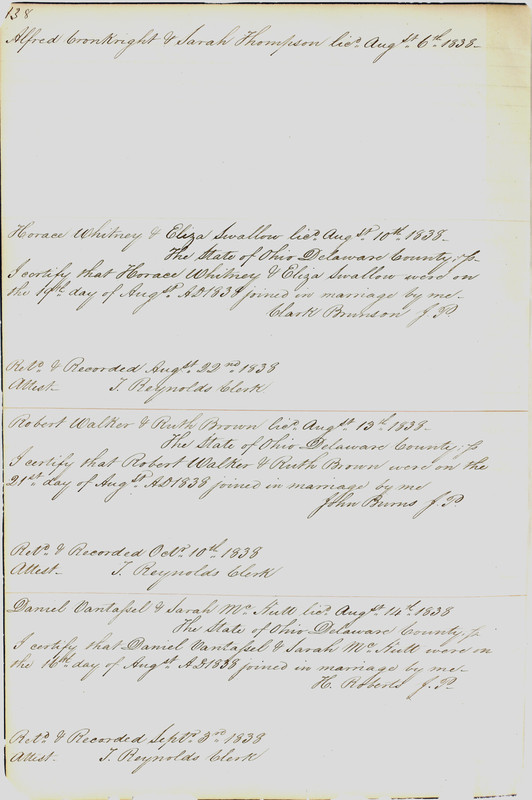 138
Alfred Cronkright & Sarah Thompson licd. Augst. 6th. 1838-
Horace Whitney & Eliza Swallow licd. Augst. 10th. 1838-
The State of Ohio Delaware County, ss
I certify that Horace Whitney & Eliza Swallow were on
the 19th day of Augst. AD 1838 joined in marriage by me-
Clark Brunson J. P.
Retd. & Recorded Augst. 22nd. 1838
Attest- T. Reynolds Clerk
Robert Walker & Ruth Brown licd. Augst. 13th. 1838-
The State of Ohio Delaware County, ss
I certify that Robert Walker & Ruth Brown were on the
21st day of Augst. AD 1838 joined in marriage by me
John Burns J. P.
Retd. & Recorded Octr. 10th. 1838
Attest- T. Reynolds Clerk
Daniel Vantassel & Sarah Mc. Nutt licd. Augst. 14th. 1838
The State of Ohio Delaware County, ss
I certify that Daniel Vantassel & Sarah Mc. Nutt were on
the 16th day of Augst. AD 1838 joined in marriage by me-
H. Roberts J. P.
Retd. & Recorded Septr. 3rd. 1838
Attest- T. Reynolds Clerk